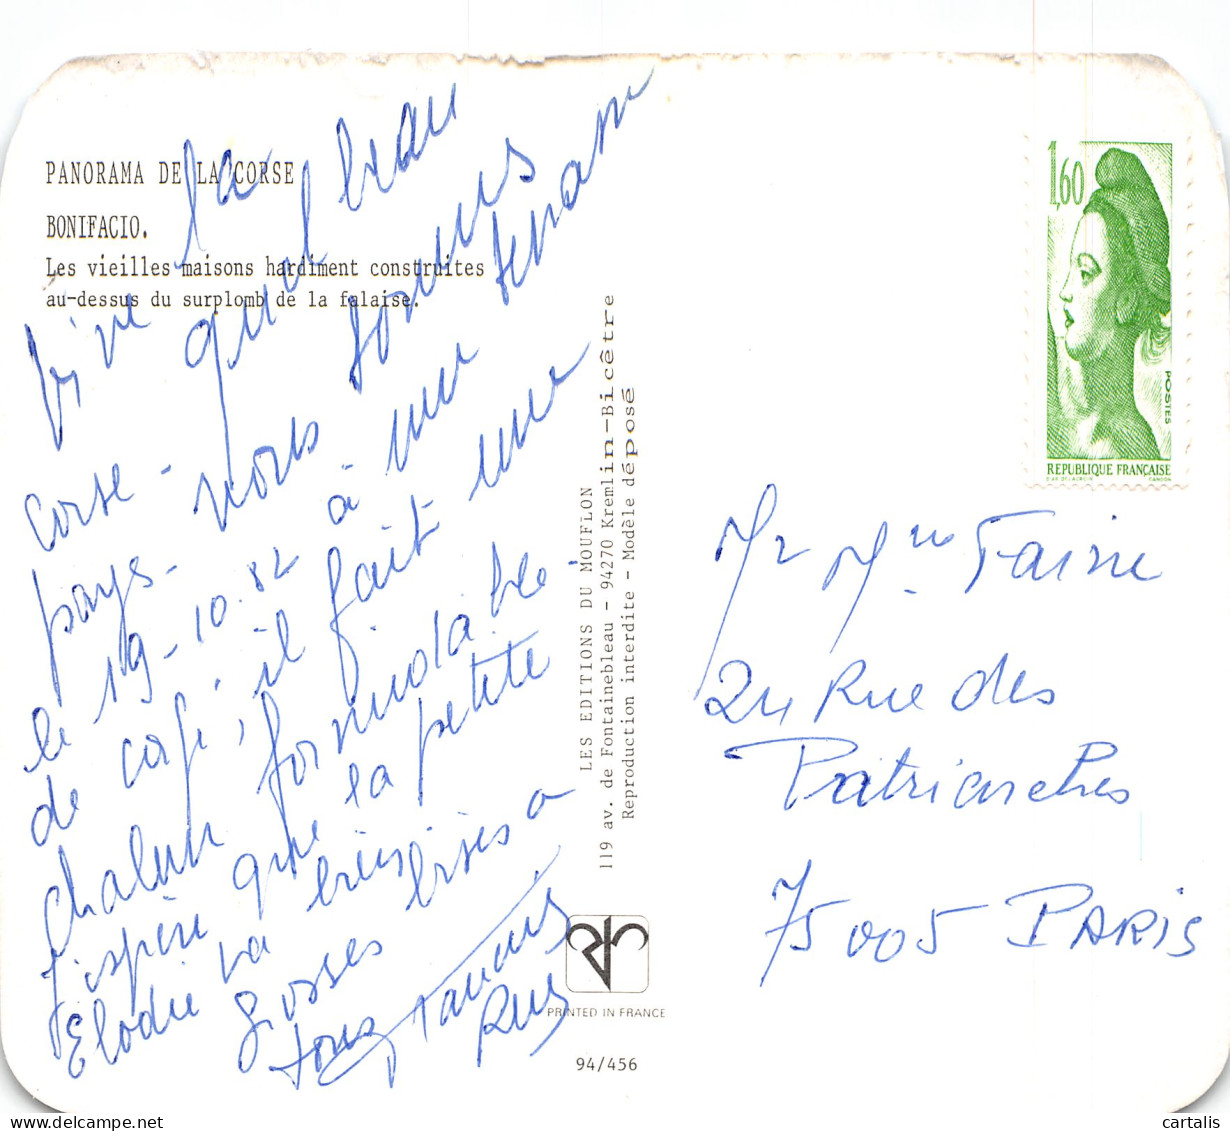 PANORAMA DE LA CORSE
BONIFACIO.
Les vieilles maisons hardiment construites
au-dessus du surplomb de la falaise.
Vive la
Corse - quel beau
pays - nous sommes
le 19-10-82 à une terrasse
de café, il fait une
chaleur formidable
j'espère que la petite
Elodie va bien bises a
tous
LES EDITIONS DU MOUFLON
119 av. de Fontainebleau - 94270 Kremlin-Bicêtre
Reproduction interdite - Modèle déposé
PRINTED IN FRANCE
94/456
1,60
POSTES
REPUBLIQUE FRANÇAISE
D'AP. DELACROIX GANDON
Mr Mme Faine
24 Rue des
Patriarches
75005 PARIS
cartalis